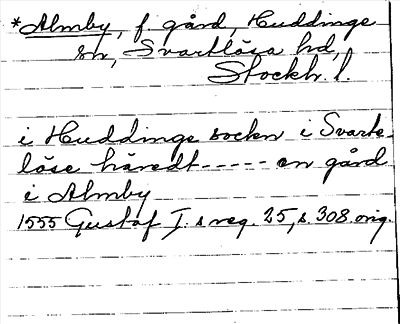 *Almby, f. gård, Huddinge
sn, Svartlösa hd,
Stockh. l.
i Huddinge sockn i Svarte-
löse häredt ----- en gård
i Almby
1555 Gustaf I.s reg. 25, s. 308 orig.